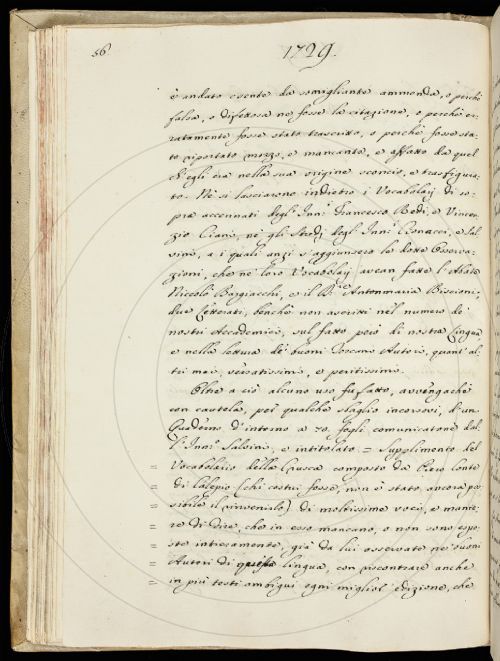 56
1729.
è andato esente da somigliante ammenda, o perchè
falsa, o difettosa ne fosse la citazione, o perchè er-
ratamente fosse stato trascritto, o perchè fosse sta-
to riportato mozzo, e mancante, e affatto da quel
ch'egli era nella sua origine sconcio, e trasfigura-
to. Nè si lasciarono indietro i Vocabolarj di so-
pra accennati degl'Inn.i Francesco Redi, e Vincen-
zio Ciani, nè gli Studj degl'Inn.i Bonacci, e Sal-
vini, a i quali anzi s'aggiunsero le dotte Osserva-
zioni, che ne' loro Vocabolarj avean fatte l'Abate
Niccolò Bargiacchi, e il D.re Antonmaria Biscioni,
due Letterati, benchè non ascritti nel numero de'
nostri Accademici, sul fatto però di nostra Lingua
e nella lettura de' buoni Toscani Autori, quant'al-
tri mai, versatissimi, e peritissimi.
Oltre a ciò alcuno uso fu fatto, avvengachè
con cautela, per qualche sbaglio incorsovi, d'un
Quaderno d'intorno a 70. fogli comunicatone dal-
l'Inn.o Salvini, e intitolato = Supplimento del
= Vocabolario della Crusca composto da Piro Conte
= di Calepio (chi costui fosse, non è stato ancora pos-
= sibile il rinvenirlo) di moltissime voci, e manie-
= re di dire, che in esso mancano, o non sono espo-
= ste interamente, già da lui osservate ne' buoni
= Autori di questa lingua, con riscontrare anche
= in più testi ambigui ogni miglior edizione, che